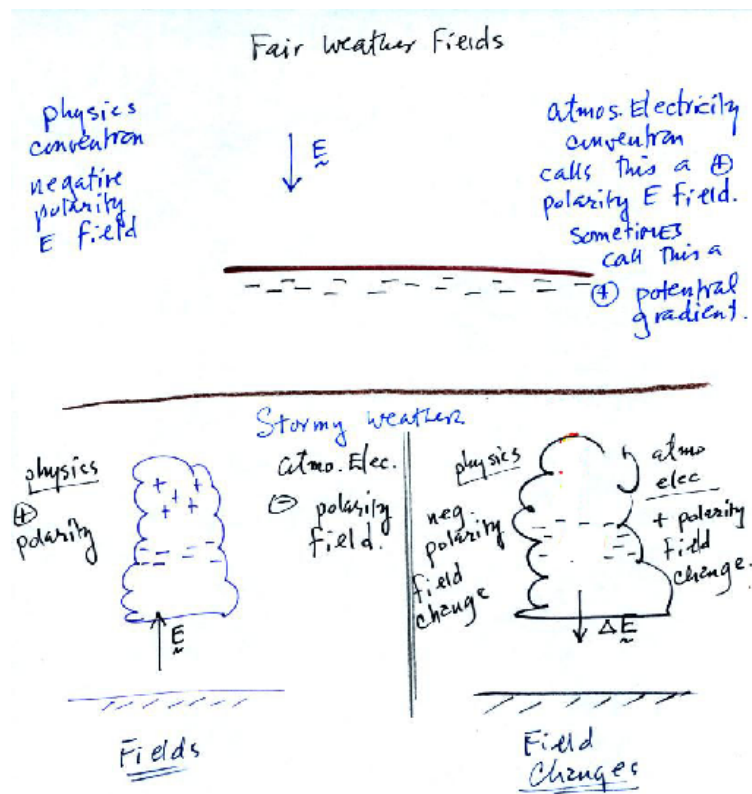 Fair Weather Fields
physics
convention
negative
polarity
E field
E
atmos. Electricity
convention
calls this a ⊕
polarity E field.
sometimes
call this a
⊕ potential
gradient.
Stormy weather
physics
⊕
polarity
+ +
+
+ +
E
Fields
atmo. Elec.
⊖ polarity
field.
physics
neg.
polarity
field
change
atmo
elec
+ polarity
field
change.
ΔE
Field
Changes